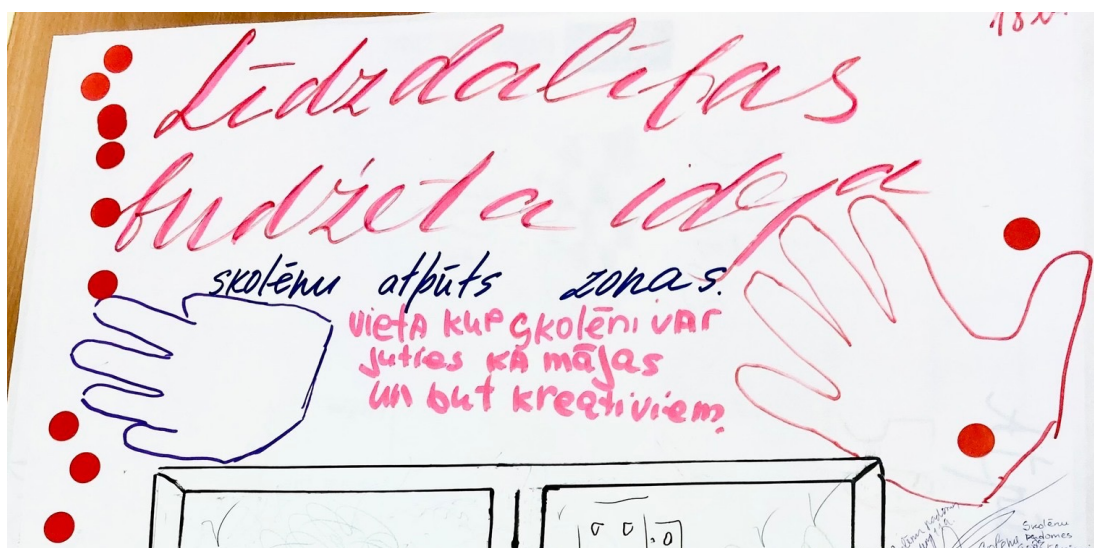 Līdzdalības
budžeta ideja
skolēnu atpūts zonas.
vieta kur skolēni var
juties kā mājas
un but kreatīviem.
Skolēnu